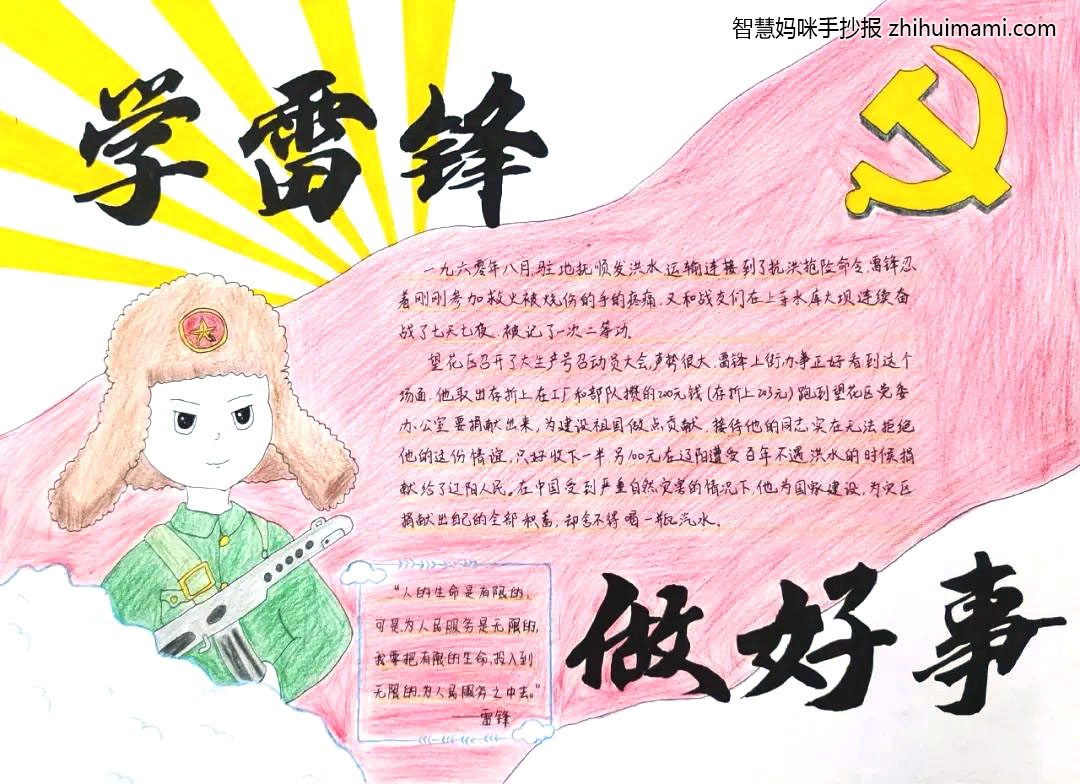 智慧妈咪手抄报 zhihuimami.com
学雷锋
一九六零年八月,驻地抚顺发洪水,运输连接到了抗洪抢险命令.雷锋忍
着刚刚参加救火被烧伤的手的疼痛,又和战友们在上寺水库大坝连续奋
战了七天七夜,被记了一次二等功。
望花区召开了大生产号召动员大会,声势很大,雷锋上街办事正好看到这个
场面,他取出存折上在工厂和部队攒的200元钱(存折上203元)跑到望花区党委
办公室要捐献出来,为建设祖国做点贡献,接待他的同志实在无法拒绝
他的这份情谊,只好收下一半.另100元在辽阳遭受百年不遇洪水的时候捐
献给了辽阳人民。在中国受到严重自然灾害的情况下,他为国家建设,为灾区
捐献出自己的全部积蓄,却舍不得喝一瓶汽水。
“人的生命是有限的,
可是为人民服务是无限的,
我要把有限的生命,投入到
无限的为人民服务之中去。”
——雷锋
做好事